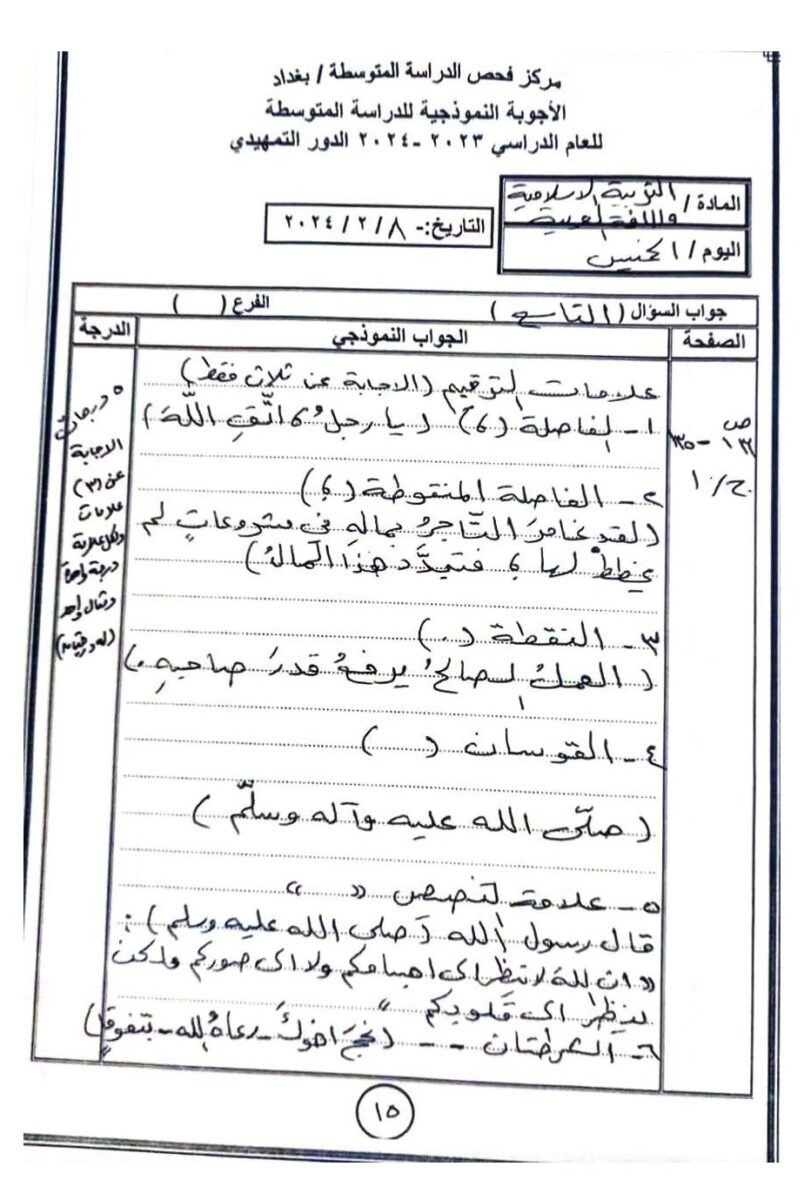 مركز فحص الدراسة المتوسطة / بغداد
الأجوبة النموذجية للدراسة المتوسطة
للعام الدراسي ٢٠٢٣ -٢٠٢٤ الدور التمهيدي
المادة / التربية الاسلامية
واللغة العربية
اليوم / الخميس
التاريخ:- ٢٠٢٤ / ٢ / ٨
جواب السؤال ( التاسع ) الفرع ( )
الصفحة الجواب النموذجي الدرجة
علامات الترقيم (الاجابة عن ثلاث فقط)
١- الفاصلة (،) (يا رجلُ، اتَّقِ اللَّهَ)
٢- الفاصلة المنقوطة (؛)
(لقد غامرَ التّاجرُ بماله في مشروعاتٍ لم
يخططْ لها؛ فتبدَّد هذا المالُ)
٣- النقطة (.)
(العملُ الصالحُ يرفعُ قدرَ صاحبهِ.)
٤- القوسان ( )
(صلّى الله عليه وآله وسلّم)
٥- علامة التنصيص « »
قال رسول الله (صلى الله عليه وسلم):
«ان الله لا ينظر الى اجسامكم ولا الى صوركم ولكن
ينظر الى قلوبكم»
٦- الشرطتان - - (نجحَ اخوكَ - رعاهُ الله - بتفوقٍ)
ص
ج/١
٥ درجات
الاجابة
عن (٣)
علامات
ولكل علامة
درجة واحدة
ومثال واحد
١٥